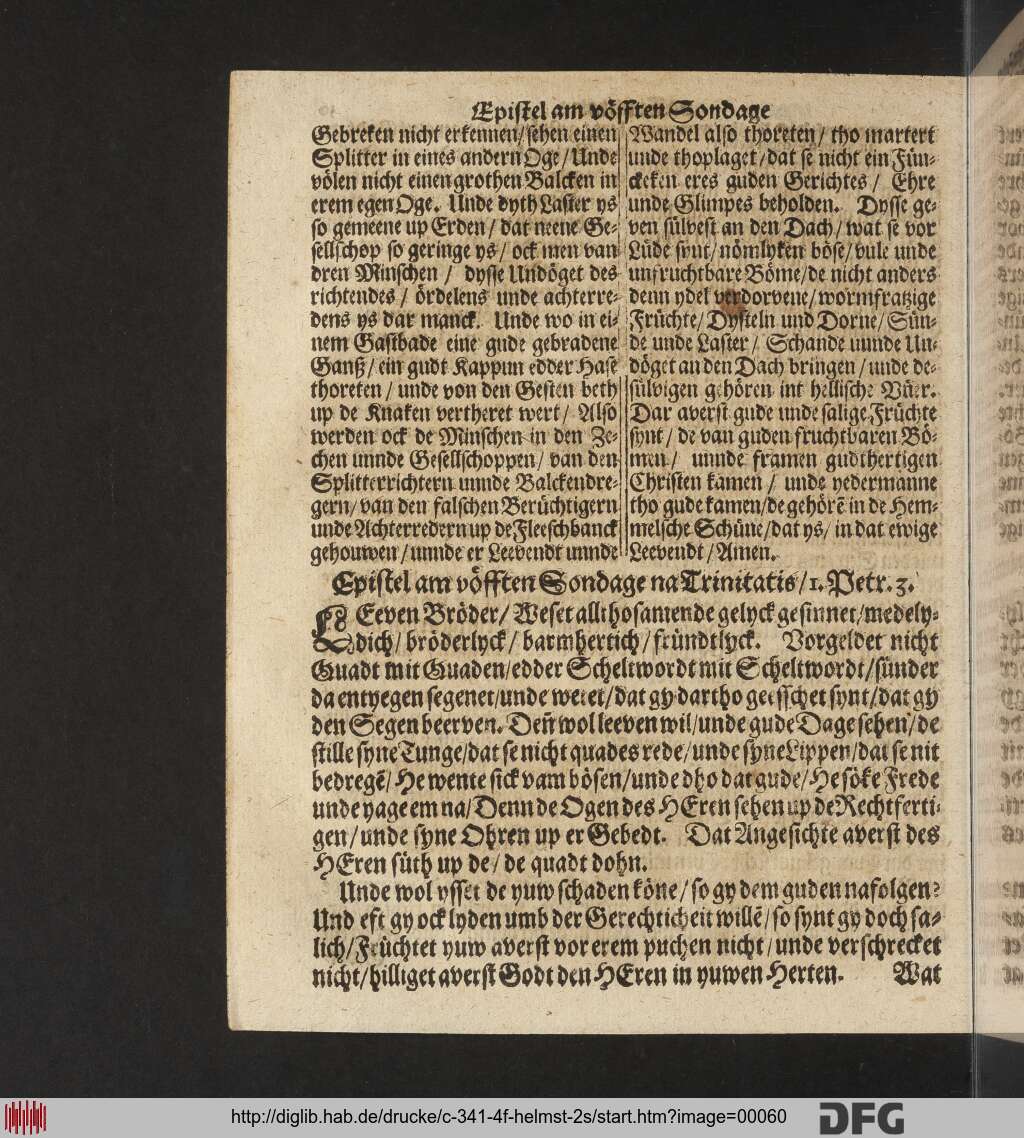 Epistel am vöfften Sondage
Gebreken nicht erkennen/ sehen einen
Splitter in eines andern Oge/ Unde
völen nicht einen grothen Balcken in
erem egen Oge. Unde dyth Laster ys
so gemeene up Erden/ dat neene Ge-
sellschop so geringe ys/ ock men van
dren Minschen/ dysse Undöget des
richtendes/ ördelens unde achterre-
dens ys dar manck. Unde wo in ei-
nem Gastbade eine gude gebradene
Ganß/ ein gudt Kappun edder Hase
thoreten/ unde von den Gesten beth
up de Knaken vertheret wert/ Also
werden ock de Minschen in den Ze-
chen unnde Gesellschoppen/ van den
Splitterrichtern unnde Balckendre-
gern/ van den falschen Berüchtigern
unde Achterredern up de Fleeschbanck
gehouwen/ unnde er Leevendt unnde
Wandel also thoreten/ tho martert
unde thoplaget/ dat se nicht ein Fün-
ckeken eres guden Gerichtes/ Ehre
unde Glimpes beholden. Dysse ge-
ven sülvest an den Dach/ wat se vor
Lüde synt/ nömlyken böse/ vule unde
unfruchtbare Böme/ de nicht anders
denn ydel verdorvene/ wormfratzige
Früchte/ Dysteln und Dorne/ Sün-
de unde Laster/ Schande unnde Un-
döget an den Dach bringen/ unde de-
sülvigen gehören int hellische Vüer.
Dar averst gude unde salige Früchte
synt/ de van guden fruchtbaren Bö-
men/ unnde framen gudthertigen
Christen kamen/ unde yedermanne
tho gude kamen/ de gehörē in de Hem-
melsche Schüne/ dat ys/ in dat ewige
Leevendt/ Amen.
Epistel am vöfften Sondage na Trinitatis/ 1. Petr. 3.
LEeven Bröder/ Weset allthosamende gelyck gesinnet/ medely-
dich/ bröderlyck/ barmhertich/ fründtlyck. Vorgeldet nicht
Quadt mit Quaden/ edder Scheltwordt mit Scheltwordt/ sünder
da entyegen segenet/ unde wetet/ dat gy dartho geesschet synt/ dat gy
den Segen beerven. Deñ wol leeven wil/ unde gude Dage sehen/ de
stille syne Tunge/ dat se nicht quades rede/ unde syne Lippen/ dat se nit
bedregē/ He wente sick vam bösen/ unde dho dat gude/ He söke Frede
unde yage em na/ Denn de Ogen des HEren sehen up de Rechtferti-
gen/ unde syne Ohren up er Gebedt. Dat Angesichte averst des
HEren süth up de/ de quadt dohn.
Unde wol ysset de yuw schaden köne/ so gy dem guden nafolgen?
Und eft gy ock lyden umb der Gerechticheit willē/ so synt gy doch sa-
lich/ Früchtet yuw averst vor erem puchen nicht/ unde verschrecket
nicht/ hilliget averst Godt den HEren in yuwen Herten. Wat
http://diglib.hab.de/drucke/c-341-4f-helmst-2s/start.htm?image=00060
DFG